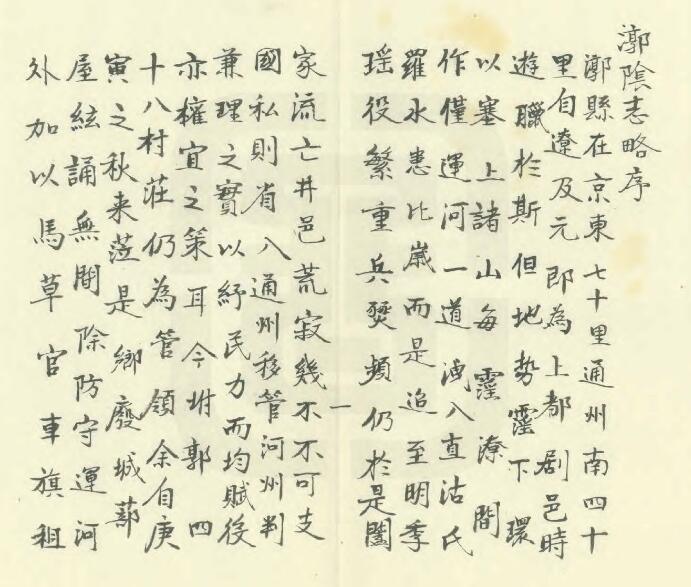 漷陰志略序
漷縣在京東七十里通州南四十
里自遼及元即為上都劇邑時
遊臘於斯但地勢窪下環
以塞上諸山每霪潦間
作僅運河一道洩入直沽氏
羅水患比歲而是迨至明季
瑤役繁重兵燹頻仍於是闔
一
家流亡井邑荒寂幾不不可支
國私則省入通州移管河州判
兼理之實以紓民力而均賦役
亦權宜之策耳今坿郭四
十八村莊仍為管領余自庚
寅之秋来蒞是鄉廢城蔀
屋絃誦無聞除防守運河
外加以馬草官車旗租